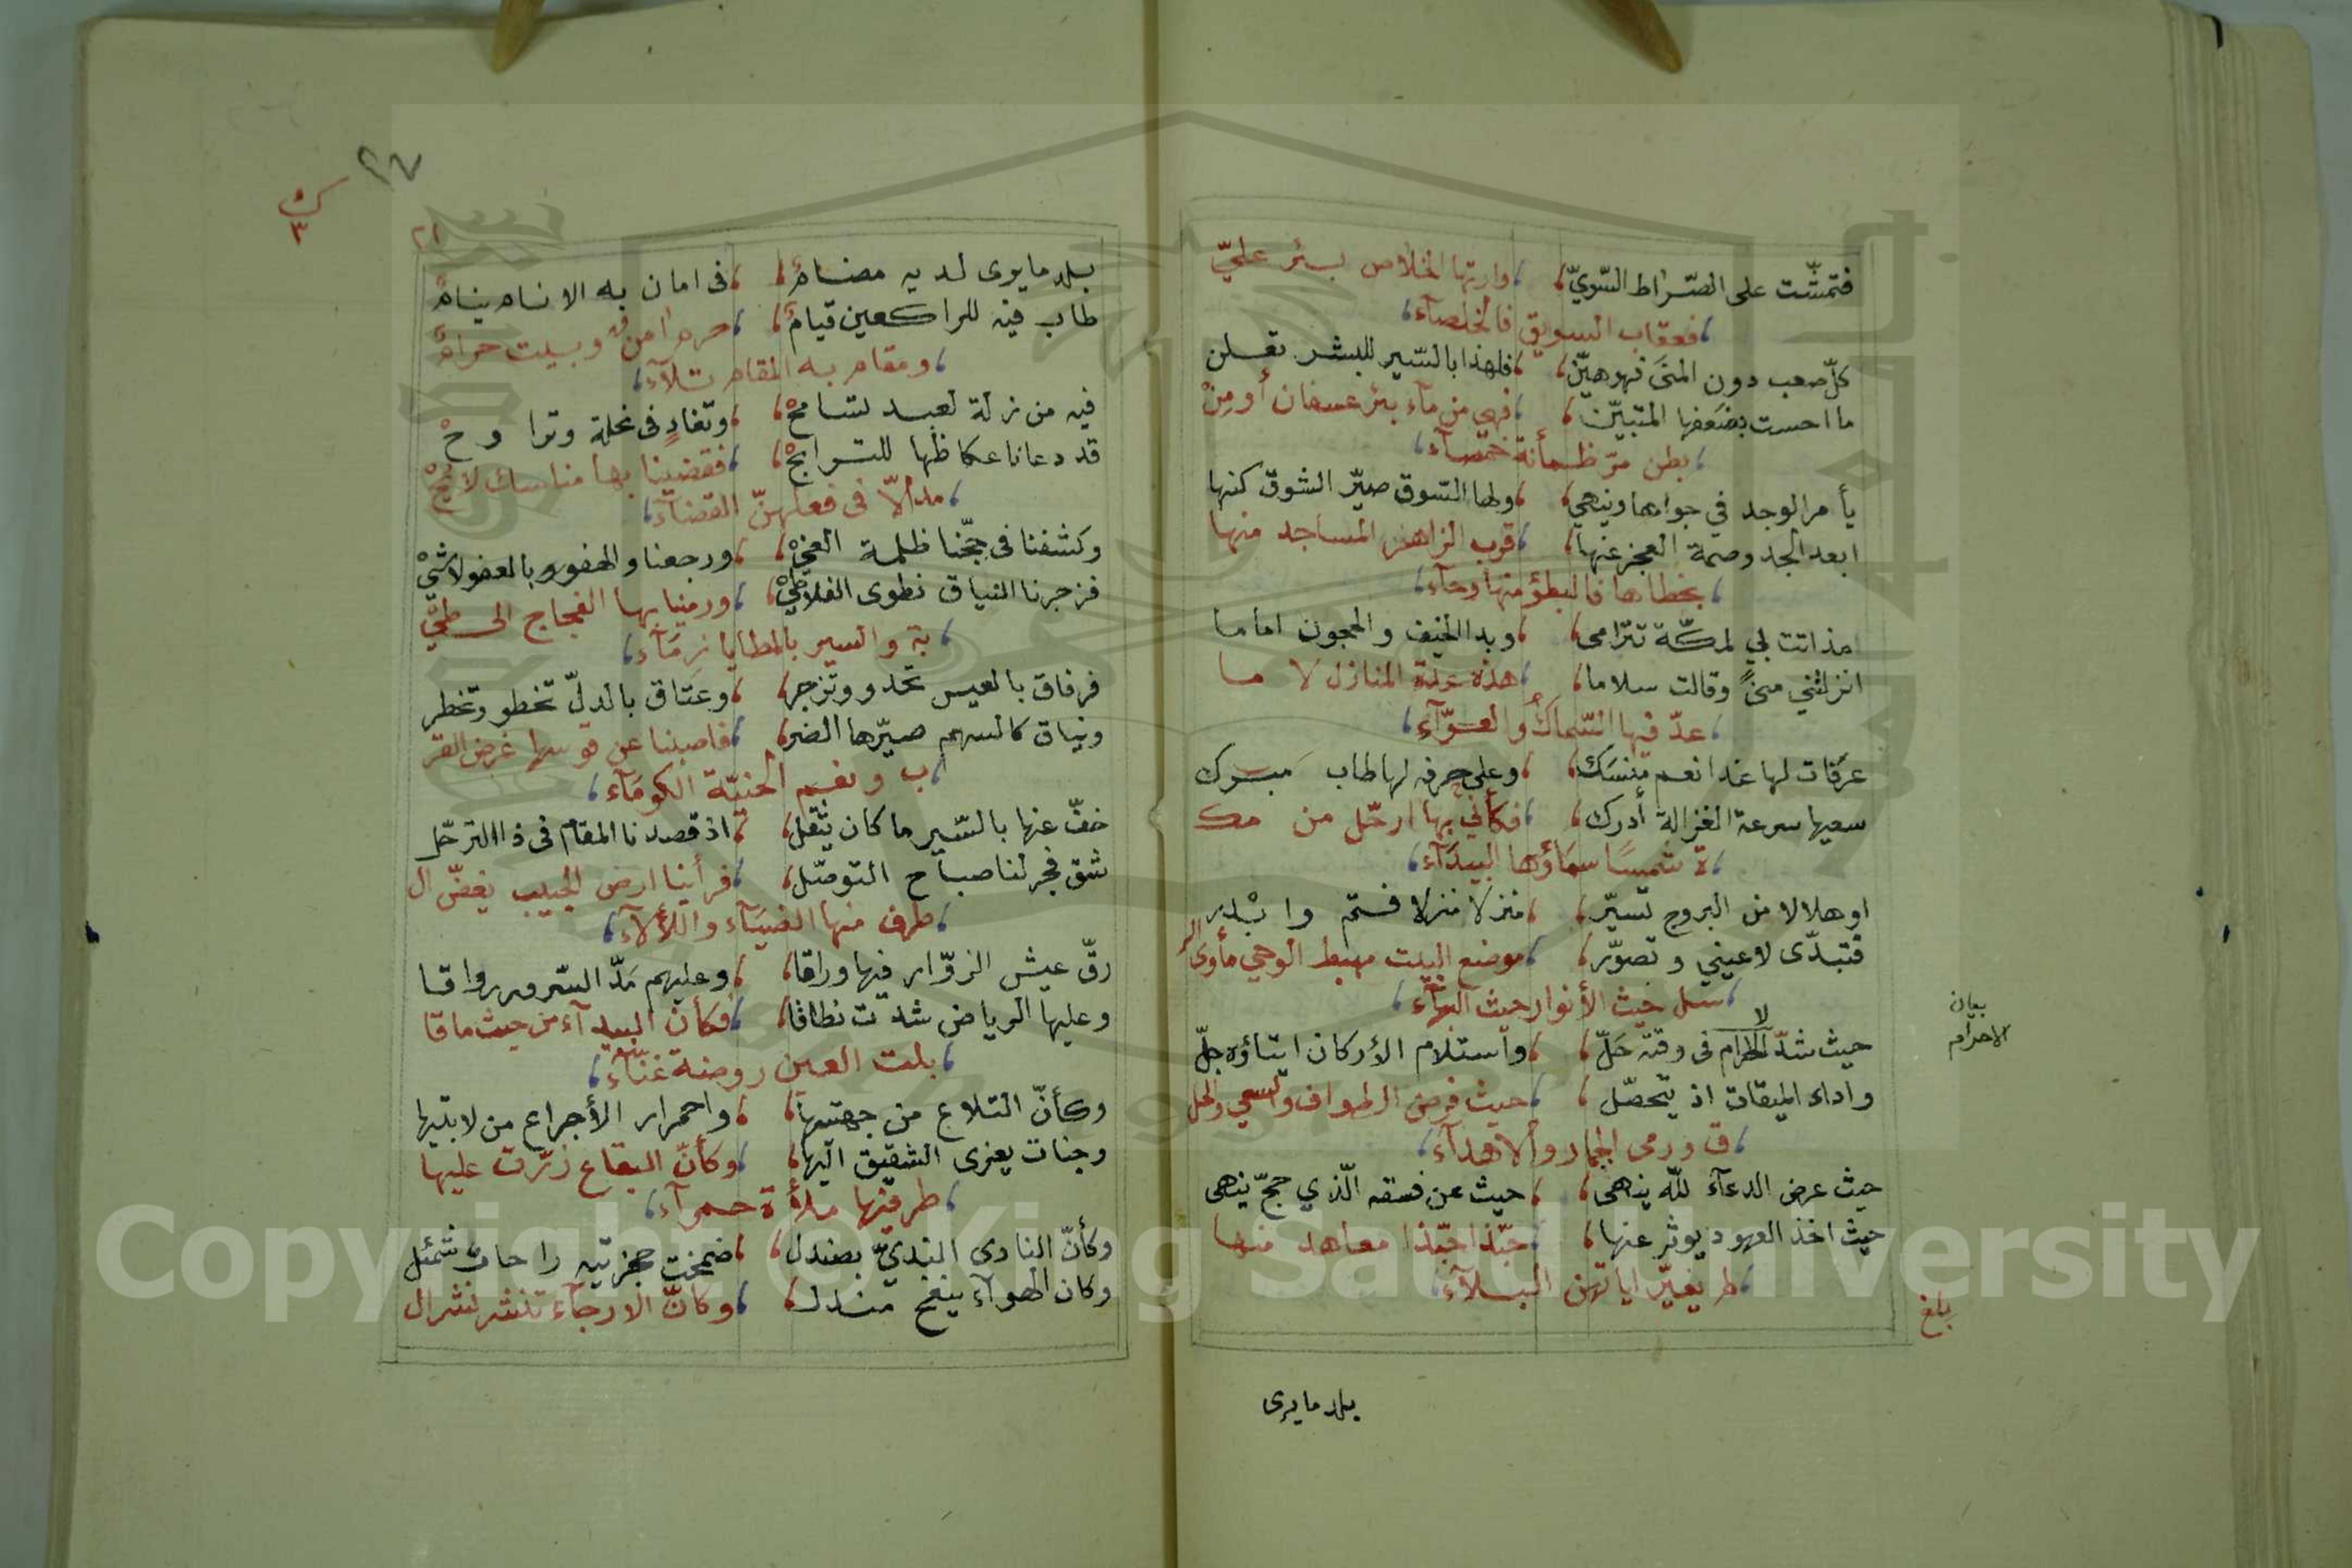 فتمشّت على الصّراط السّويّ وارتها الخلاص بئر عليّ
فعقاب السويق فالخلصآء
كلّ صعب دون المنى فهو هيّن فلهذا بالسّير للبشر تعلن
ما احست بضعفها المتبيّن فهي من مآء بئر عسفان أو من
بطن مرّ ظمأنة خمصآء
يأمر الوجد في جواها وينهي ولها التسوق صيّر الشوق كنها
ابعد الجد وصمة العجز عنها قرب الزاهر المساجد منها
بخطاها فالبطؤ منها وحآء
مذ اتت لي لمكّة تترامى وبدا الخيف والحجون اماما
انزلتني منىً وقالت سلاما هذه عدة المنازل لا ما
عدّ فيها السّماك والعوّآء
عرفات لها غدا نعم منسك وعلى حرفه لها طاب مبرك
سعيها سرعة الغزالة أدرك فكأني بها ارحّل من مك
ة شمسًا سمآؤها البيدآء
او هلالا من البروج تسيّر منزلا منزلا فستم وابدر
فتبدّى لاعيني وتصوّر موضع البيت مهبط الوحي مأوى الر
سل حيث الأنوار حيث البهآء
بيان الاحرام
حيث شدّ الاحرام في وقته حلّ واستلام الأركان ايتاؤه جلّ
واداء الميقات اذ يتحصّل حيث فرض الطواف والسعي والحل
ق ورمى الجمار والاهدآء
حيث عرض الدعآء للّه ينهى حيث عن فسقه الّذي حجّ ينهى
حيث اخذ العهود يوثر عنها حبّذا حبّذا معاهد منها
لم يغيّر اياتهن البلآء
بلغ
بلد مايرى
٢٧
ك
٣
٢١
بلد مايرى لديه مضام في امان به الانام ينام
طاب فيه للراكعين قيام حرم امن وبيت حرام
ومقام به المقام تلآء
فيه من زلة لعبد تسامح وتغادٍ في غلة وتراوح
قد دعانا عكاظها للترابح فقضينا بها مناسك لا يح
مد الّا في فعلهنّ القضآء
وكشفنا في حجّنا ظلمة الغي ورجعنا والهفو بالعفو لاشي
فزجرنا النياق نطوى الفلا طي ورمينا بها الفجاج الى طي
بة والسير بالمطايا رمآء
فرفاق بالعيس تحدو وتزجر وعتاق بالدلّ تخطو وتخطر
ونياق كالسهم صيّرها الضر فاصبنا عن قوسها غرض القر
ب ونعم الحنيّة الكومآء
خفّ عنها بالسّير ما كان يثقل اذ قصدنا المقام في ذا الترحّل
شق فجر لنا صباح التوصّل فرأينا ارض الحبيب يغضّ ال
طرف منها الضيآء واللألآء
رقّ عيش الزوّار فيها وراقا وعليهم مدّ السّرور رواقا
وعليها الرياض شدّت نطاقا فكأن البيدآء من حيث ما قا
بلت العين روضة غنّآء
وكأنّ التلاع من جهتيها واحمرار الأجراع من لابتيها
وجنات يعزى الشقيق اليها وكأنّ البقاع زرّت عليها
طرفيها ملأة حمرآء
وكأنّ النادى النديّ بصندل ضمخت حجرتيه راحات شمئل
وكان الهوآء ينفح مندل وكانّ الارجآء تنشر نشر ال
Copyright © King Saud University